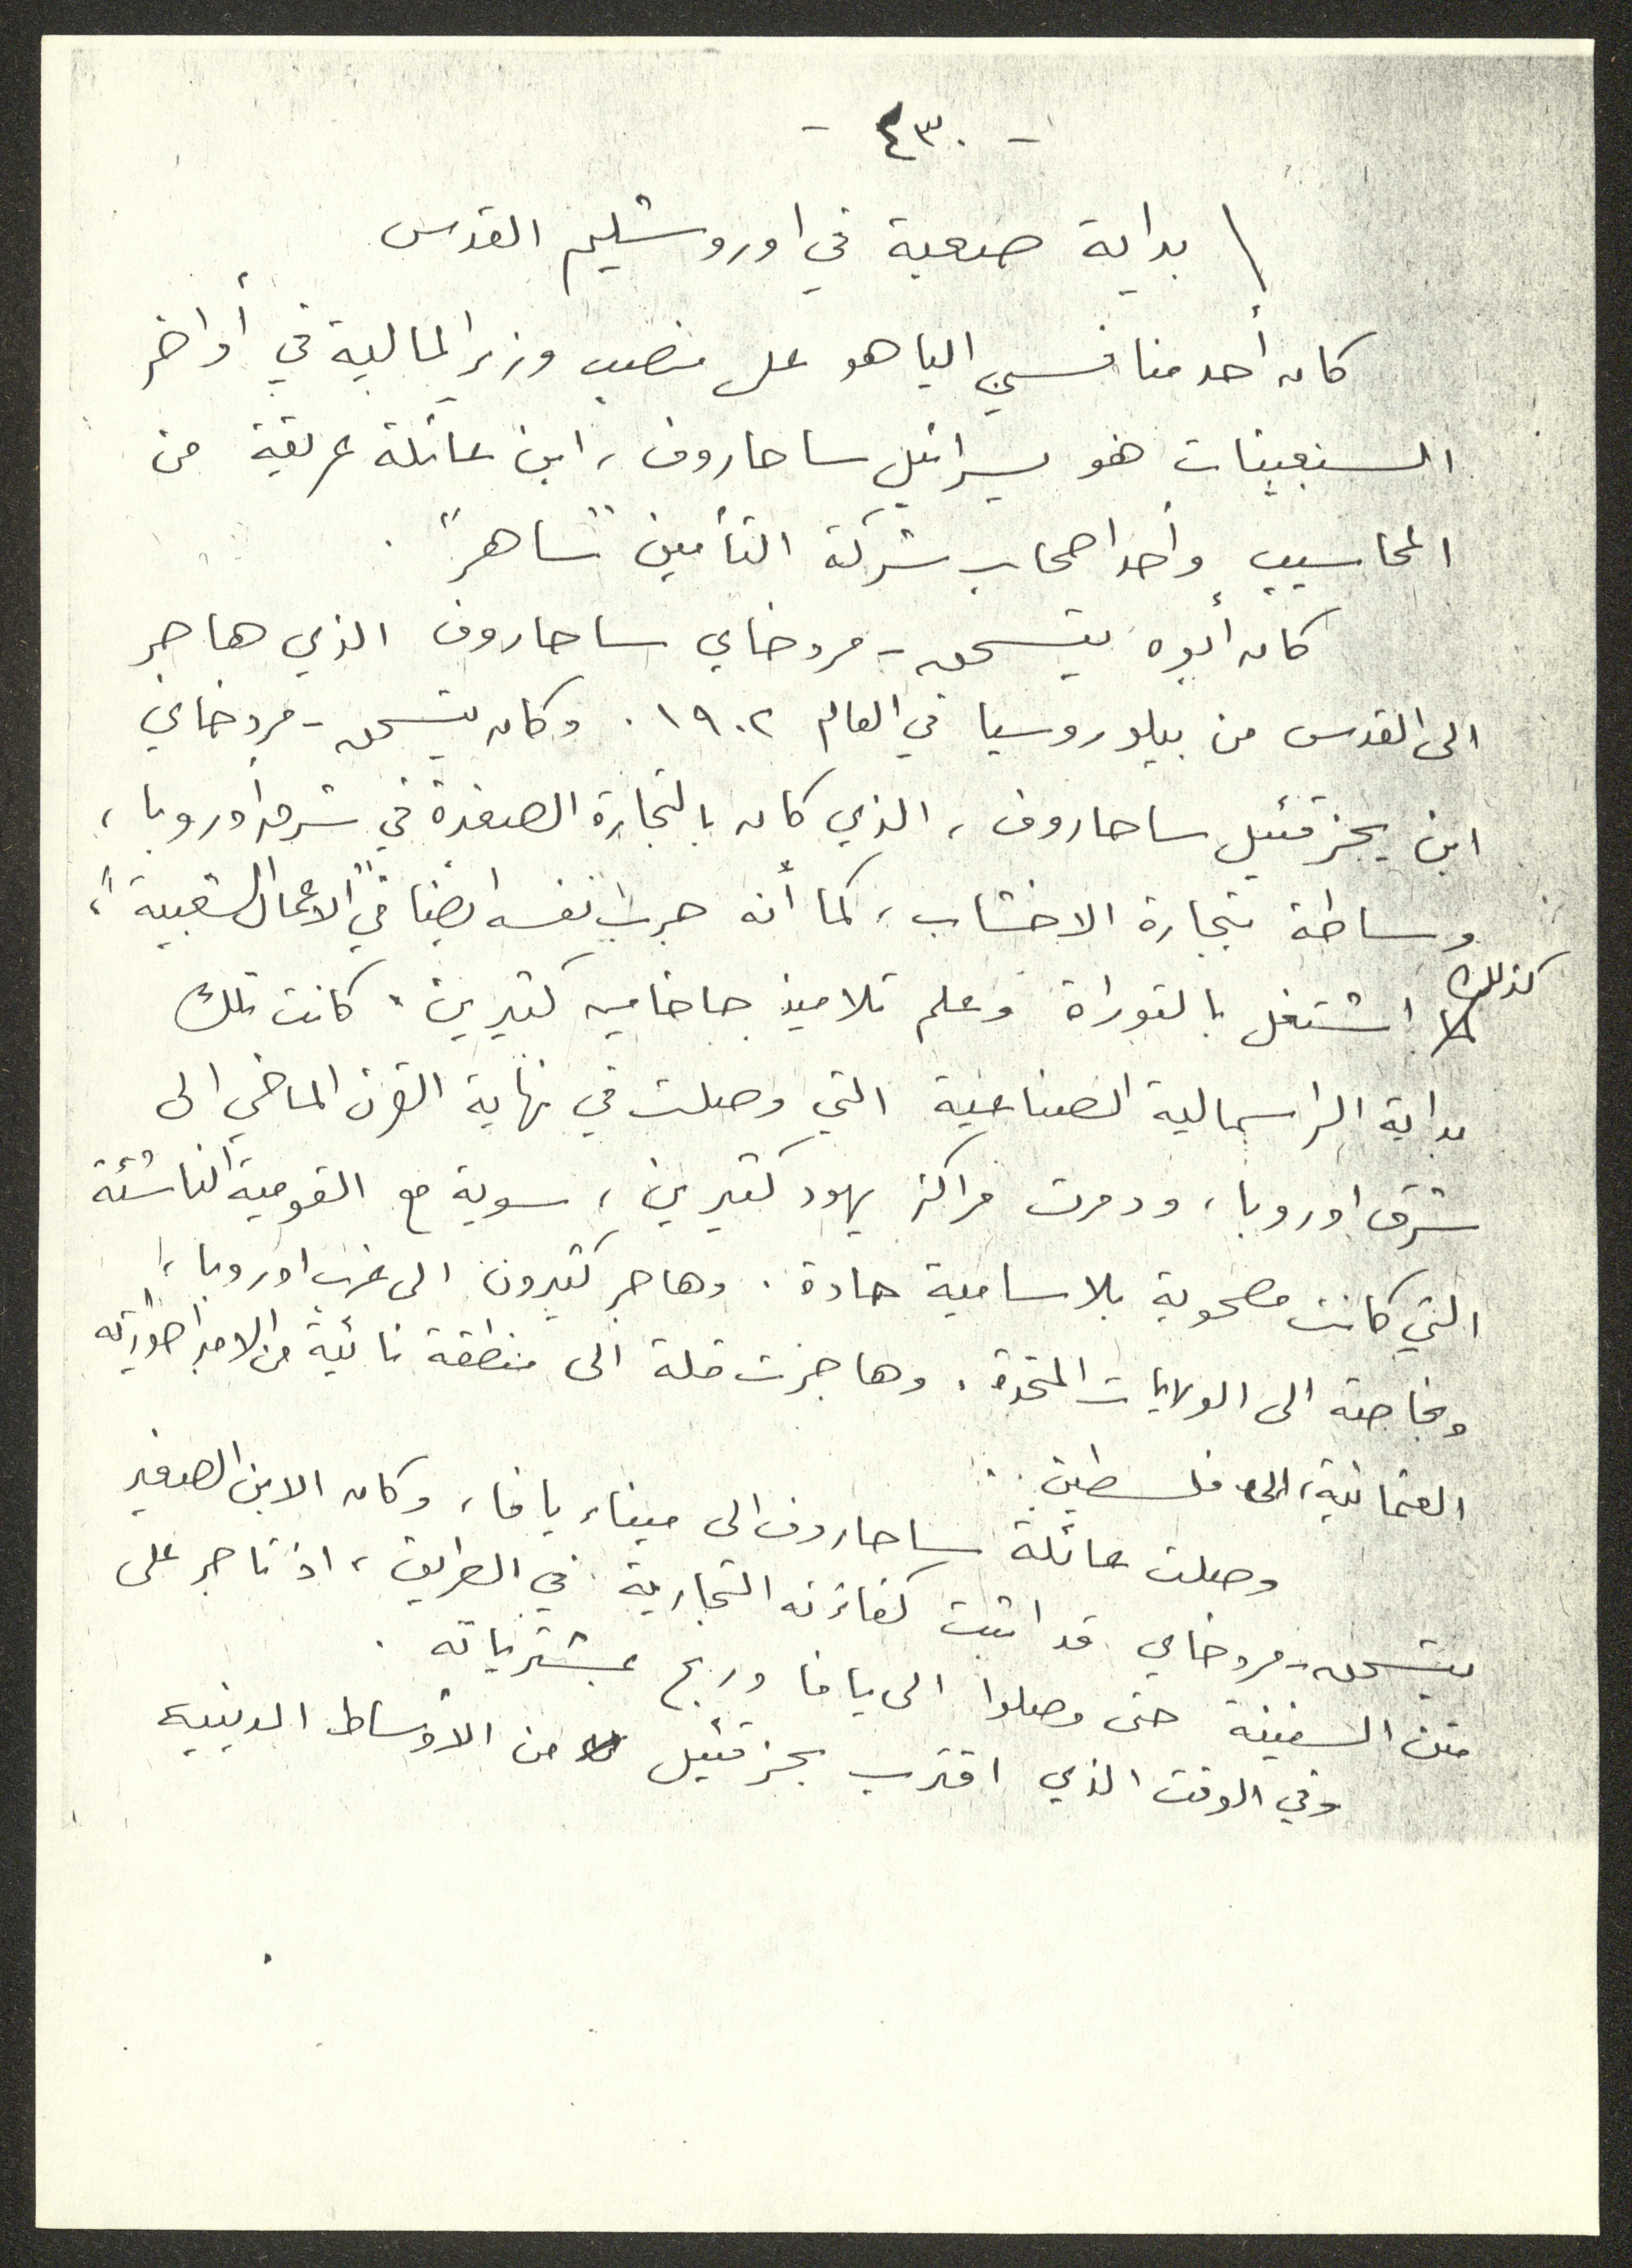 - ٤٣٠ -
بداية صعبة في اوروشليم القدس
كان أحد منافسي الياهو على منصب وزير المالية في أواخر
السبعينات هو يسرائيل ساحاروف، ابن عائلة عريقة من
المحاسيب وأحد اصحاب شركة التأمين "ساهر".
كان أبوه يتسحق - مردخاي ساحاروف الذي هاجر
الى القدس من بيلوروسيا في العام ١٩٠٢. وكان يتسحق - مردخاي
ابن يحزقئيل ساحاروف، الذي كان بالتجارة الصغيرة في شرق أوروبا،
وساطة تجارة الاخشاب، كما أنه جرب نفسه ايضا في "الاعمال الشعبية"،
كذلك اشتغل بالتوراة وعلم تلاميذ حاخامين كثيرين. كانت تلك
بداية الراسمالية الصناعية التي وصلت في نهاية القرن الماضي الى
شرق اوروبا، ودمرت مراكز يهود كثيرين، سوية مع القومية الناشئة
التي كانت مصحوبة بلاسامية حادة. وهاجر كثيرون الى غرب اوروبا،
وبخاصة الى الولايات المتحدة. وهاجرت قلة الى منطقة نائية من الامبراطورية
العثمانية، الى فلسطين.
وصلت عائلة ساحاروف الى ميناء يافا، وكان الابن الصغير
يتسحق - مردخاي قد اثبت كفاءته التجارية في الطريق، اذ تاجر على
متن السفينة حتى وصلوا الى يافا وربح بمشترياته.
وفي الوقت الذي اقترب يحزقئيل من الأوساط الدينية